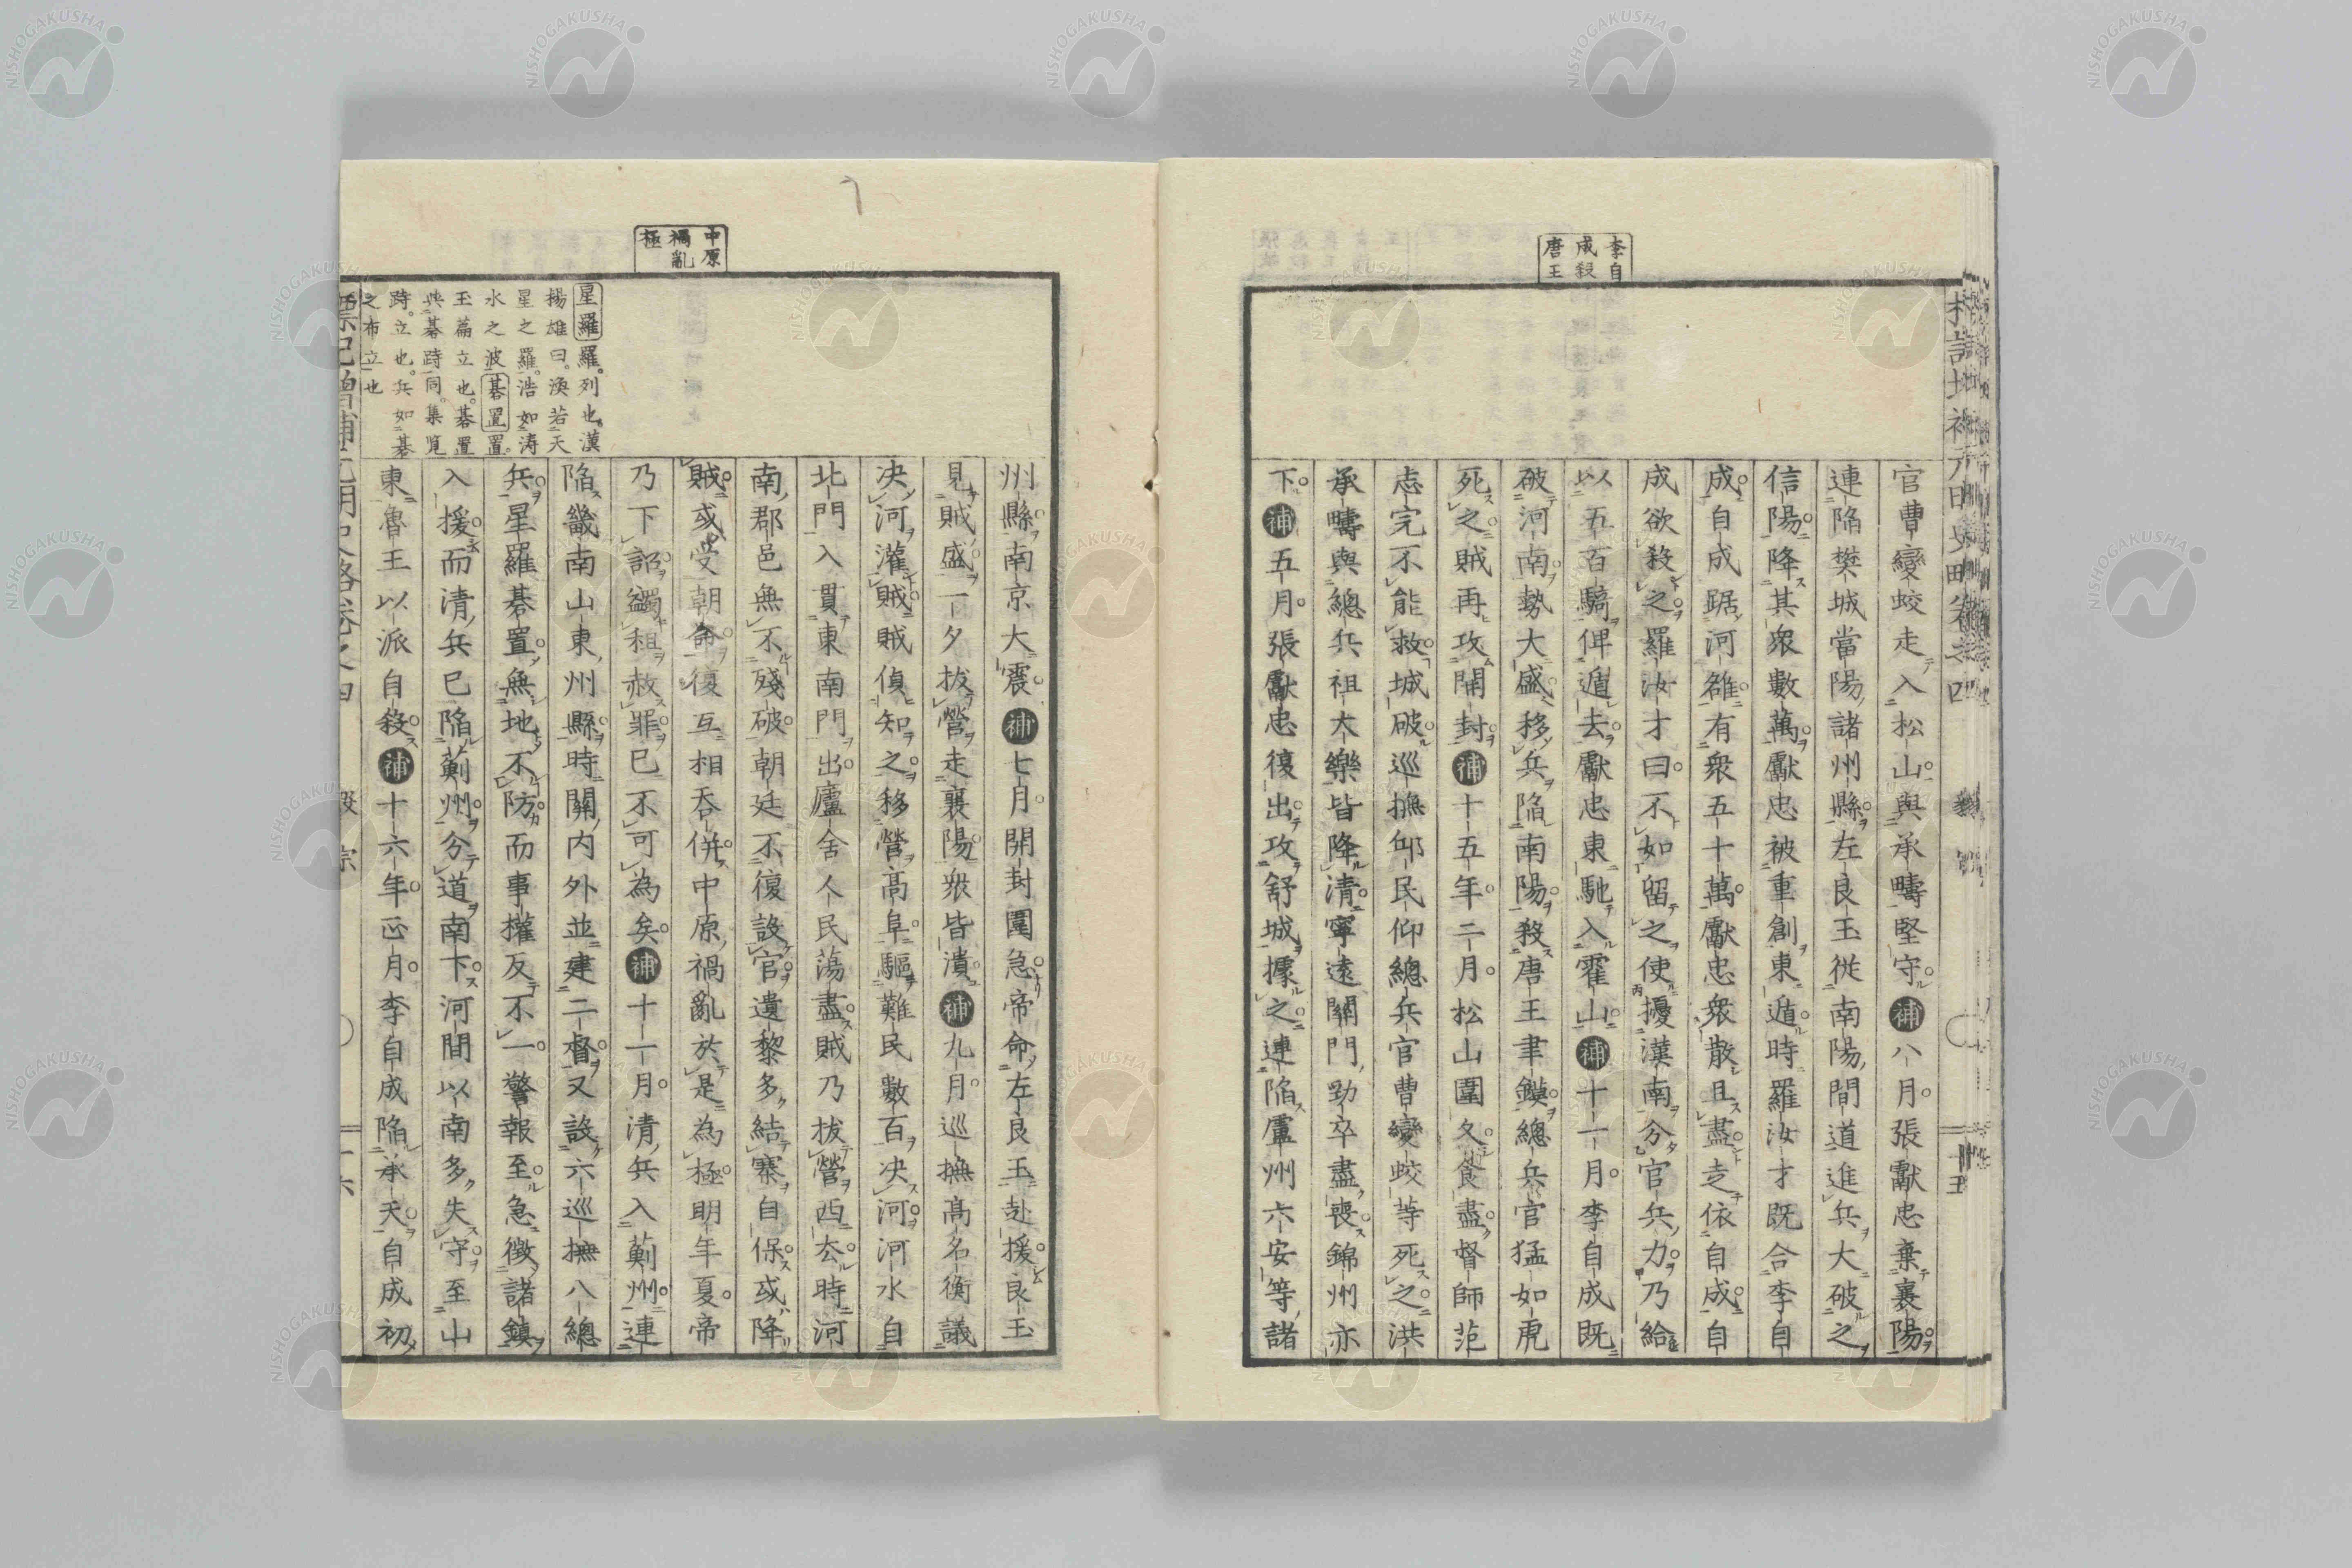 李自
成殺
唐王
官曹變蛟走入松山與承疇堅守補八月張獻忠棄襄陽
連陷樊城當陽諸州縣左良玉從南陽間道進兵大破之
信陽降其眾數萬獻忠被重創東遁時羅汝才既合李自
成自成踞河雒有眾五十萬獻忠眾散且盡走依自成自
成欲殺之羅汝才曰不如留之使擾漢南分官兵力乃給
以五百騎俾遁去獻忠東馳入霍山補十一月李自成既
破河南勢大盛移兵陷南陽殺唐王聿鏌總兵官猛如虎
死之賊再攻開封補十五年二月松山圍久食盡督師范
志完不能救城破巡撫邱民仰總兵官曹變蛟等死之洪
承疇與總兵祖大樂皆降清寧遠關門勁卒盡喪錦州亦
下補五月張獻忠復出攻舒城據之連陷廬州六安等諸
中原
禍亂
極
州縣南京大震補七月開封圍急帝命左良玉赴援良玉
見賊盛一夕拔營走襄陽眾皆潰補九月巡撫高名衡議
決河灌賊賊偵知之移營高阜驅難民數百決河河水自
北門入貫東南門出廬舍人民蕩盡賊乃拔營西去時河
南郡邑無不殘破朝廷不復設官遺黎多結寨自保或降
賊或受朝命復互相吞併中原禍亂於是為極明年夏帝
乃下詔蠲租赦罪已不可為矣補十一月清兵入薊州連
陷畿南山東州縣時關內外並建二督又設六巡撫八總
兵星羅碁置無地不防而事權反不一警報至急徵諸鎮
入援而清兵已陷薊州分道南下河間以南多失守至山
東魯王以派自殺補十六年正月李自成陷承天自成初
星羅羅列也漢
揚雄曰渙若天
星之羅浩如濤
水之波碁置置
玉篇立也碁置
與碁跱同集覽
跱立也兵如碁
之布立也
NISHOGAKUSHA